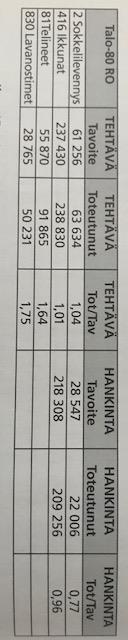 Talo-80 RO TEHTÄVÄ TEHTÄVÄ TEHTÄVÄ HANKINTA HANKINTA HANKINTA
Tavoite Toteutunut Tot/Tav Tavoite Toteutunut Tot/Tav
2 Sokkelilevennys 61 256 63 634 1,04 28 547 22 006 0,77
416 Ikkunat 237 430 238 830 1,01 218 308 209 256 0,96
81Telineet 55 870 91 865 1,64
830 Lavanostimet 28 765 50 231 1,75